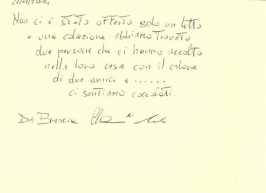 Non ci è stato offerto solo un letto
e una colazione abbiamo trovato
due persone che ci hanno accolto
nella loro casa con il calore
di due amici e ......
ci sentiamo coccolati.
Da Brescia